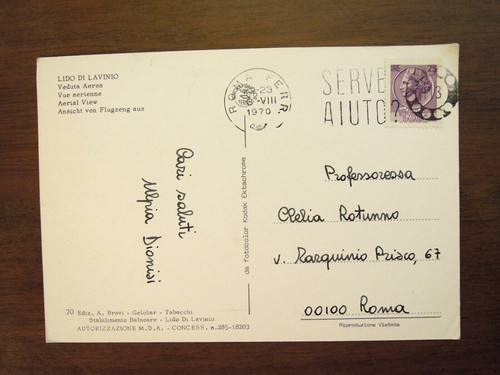 LIDO DI LAVINIO
Veduta Aerea
Vue aerienne
Aerial View
Ansicht von Flugzeng aus
ROMA FERR
23
VIII
1970
SERVE
AIUTO?
Cari saluti
Ulpia Dionisi
da fotocolor Kodak Ektachrome
Professoressa
Clelia Rotunno
v. Tarquinio Prisco, 67
00100 Roma
70 Ediz. A. Bravi - Gelobar - Tabacchi
Stabilimento Balneare - Lido Di Lavinio
AUTORIZZAZIONE M.D.A. - CONCESS. n. 285-18203
Riproduzione Vietata